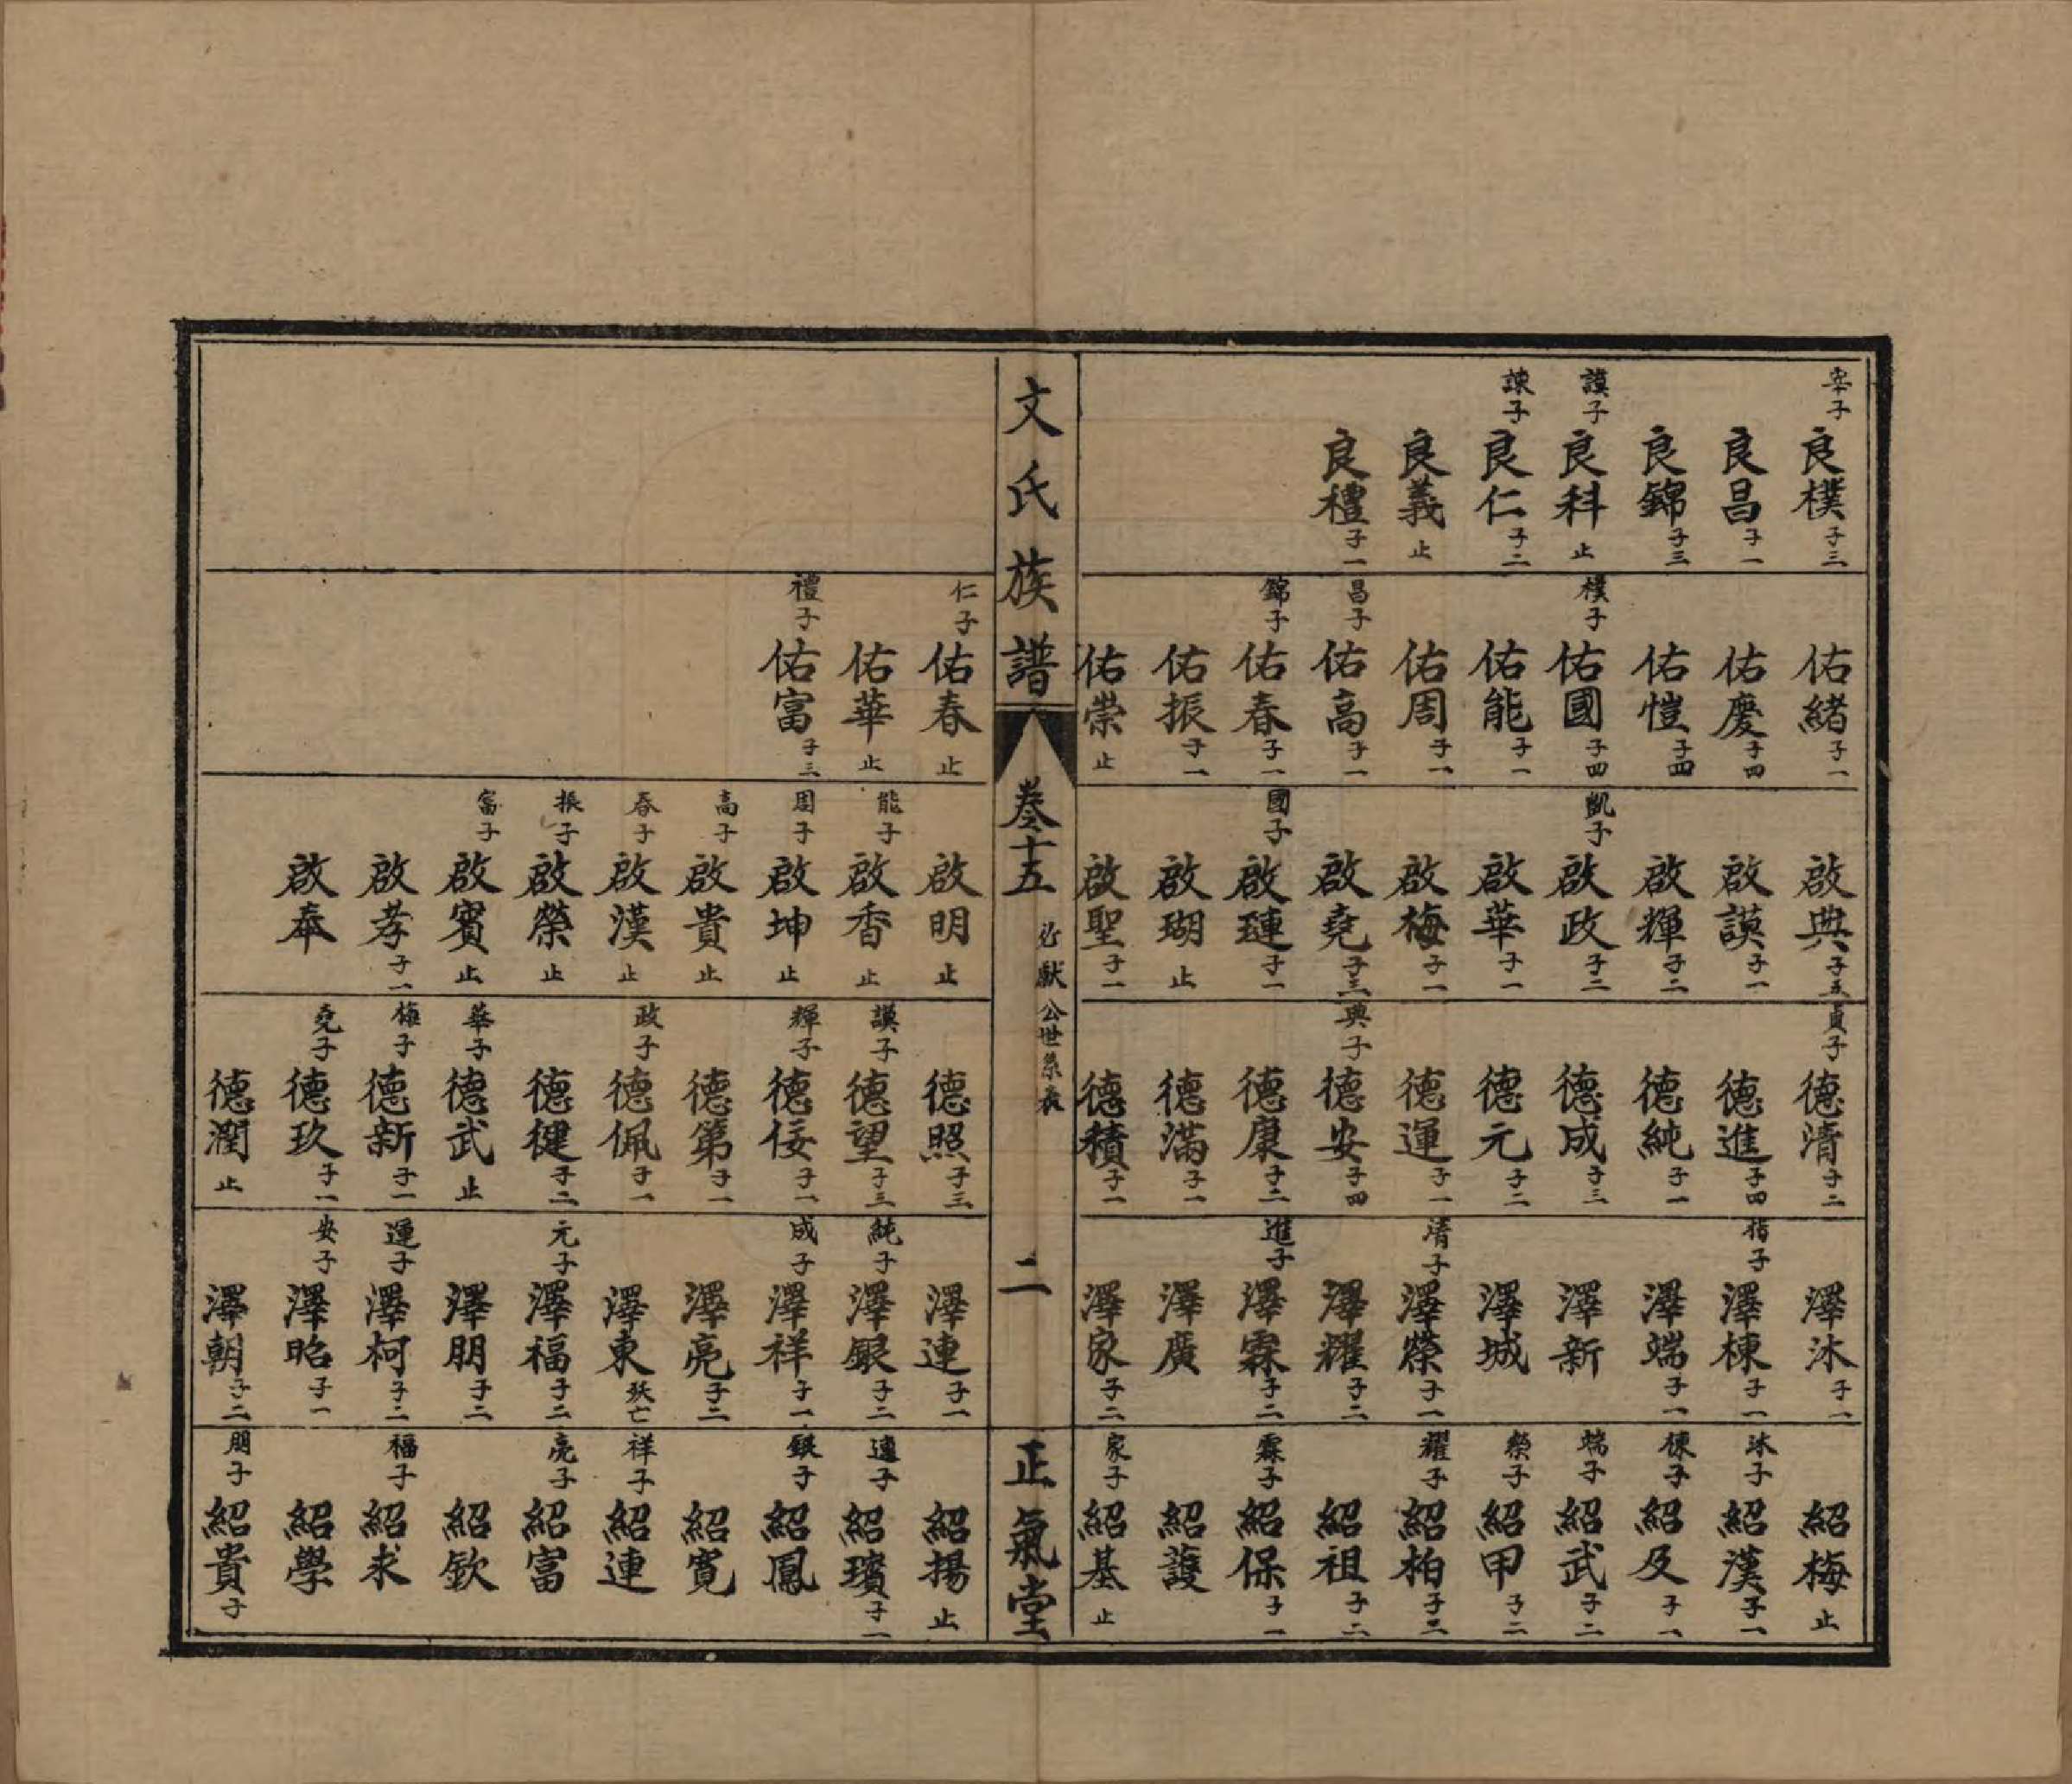 宰子 良樸 子三
良昌 子一
良錦 子三
謨子 良科 止
諫子 良仁 子二
良義 止
良禮 子一
佑緒 子一
佑慶 子四
佑愷 子四
樸子 佑國 子四
佑能 子一
佑周 子一
昌子 佑高 子一
錦子 佑春 子一
佑振 子一
佑崇 止
啟典 子五
啟謨 子一
啟輝 子二
凱子 啟政 子二
啟華 子一
啟梅 子一
啟堯 子三
國子 啟璉 子一
啟瑚 止
啟聖 子一
貞子 德清 子二
德進 子四
德純 子一
德成 子三
德元 子二
德運 子一
典子 德安 子四
德康 子二
德滿 子一
德積 子一
澤沐 子一
子 澤棟 子一
澤端 子一
澤新
澤城
清子 澤榮 子一
澤耀 子二
進子 澤霖 子二
澤廣
澤家 子二
紹梅 止
沐子 紹漢 子一
棟子 紹及 子一
端子 紹武 子二
榮子 紹甲 子二
耀子 紹柏 子二
紹祖 子二
霖子 紹保 子一
紹護
家子 紹基 止
文氏族譜
卷十五
獻公世系表
二
正氣堂
仁子 佑春 止
佑華 止
禮子 佑富 子三
啟明 止
能子 啟香 止
周子 啟坤 止
高子 啟貴 止
春子 啟漢 止
振子 啟榮 止
富子 啟賓 止
啟孝 子一
啟奉
德照 子三
謨子 德望 子三
輝子 德佞 子一
德第 子一
政子 德佩 子一
德健 子二
華子 德武 止
梅子 德新 子一
堯子 德玖 子一
德潤 止
澤連 子一
純子 澤銀 子二
成子 澤祥 子一
澤亮 子二
澤東 殀亡
元子 澤福 子二
澤朋 子二
運子 澤柯 子二
安子 澤昭 子一
澤朝 子二
紹揚 止
連子 紹璸 子一
銀子 紹鳳
紹寬
祥子 紹連
亮子 紹富
紹欽
福子 紹求
紹學
朋子 紹貴 子